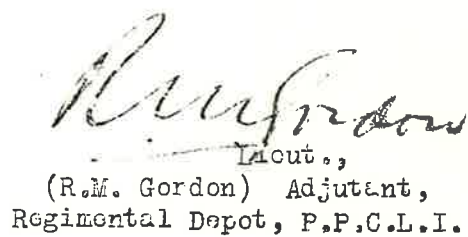 RM Gordon
Lieut.,
(R.M. Gordon) Adjutant,
Regimental Depot, P.P.C.L.I.